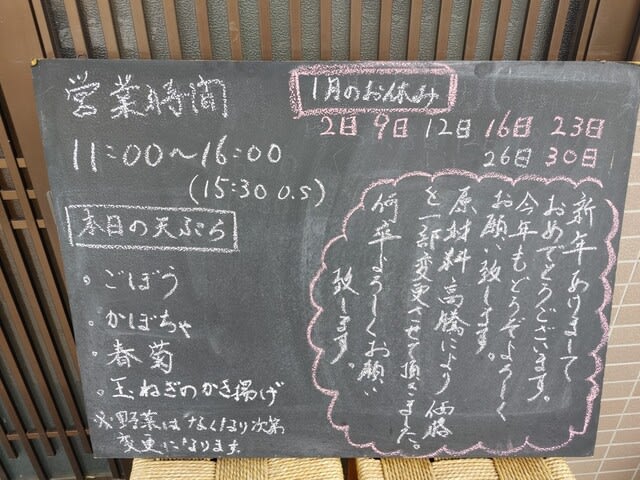 営業時間
11:00〜16:00
(15:30 O.S)
本日の天ぷら
・ごぼう
・かぼちゃ
・春菊
・玉ねぎのかき揚げ
※野菜はなくなり次第
変更になります。
1月のお休み
2日 9日 12日 16日 23日
26日 30日
新年あけまして
おめでとうございます。
今年もどうぞよろしく
お願い致します。
原材料高騰により価格
を一部変更させて頂きました。
何卒よろしくお願い
致します。